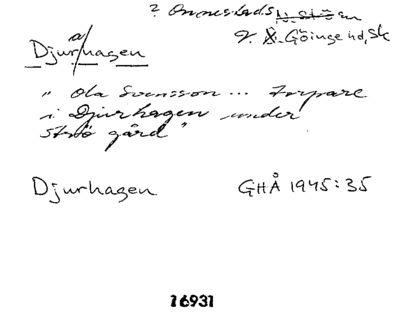 ? Onnestads sn
V. Göinge hd, Sk
Djurhagen
"Ola Svensson ... Torpare
i Djurhagen under
Strö gård"
Djurhagen GHÅ 1945:35
16931